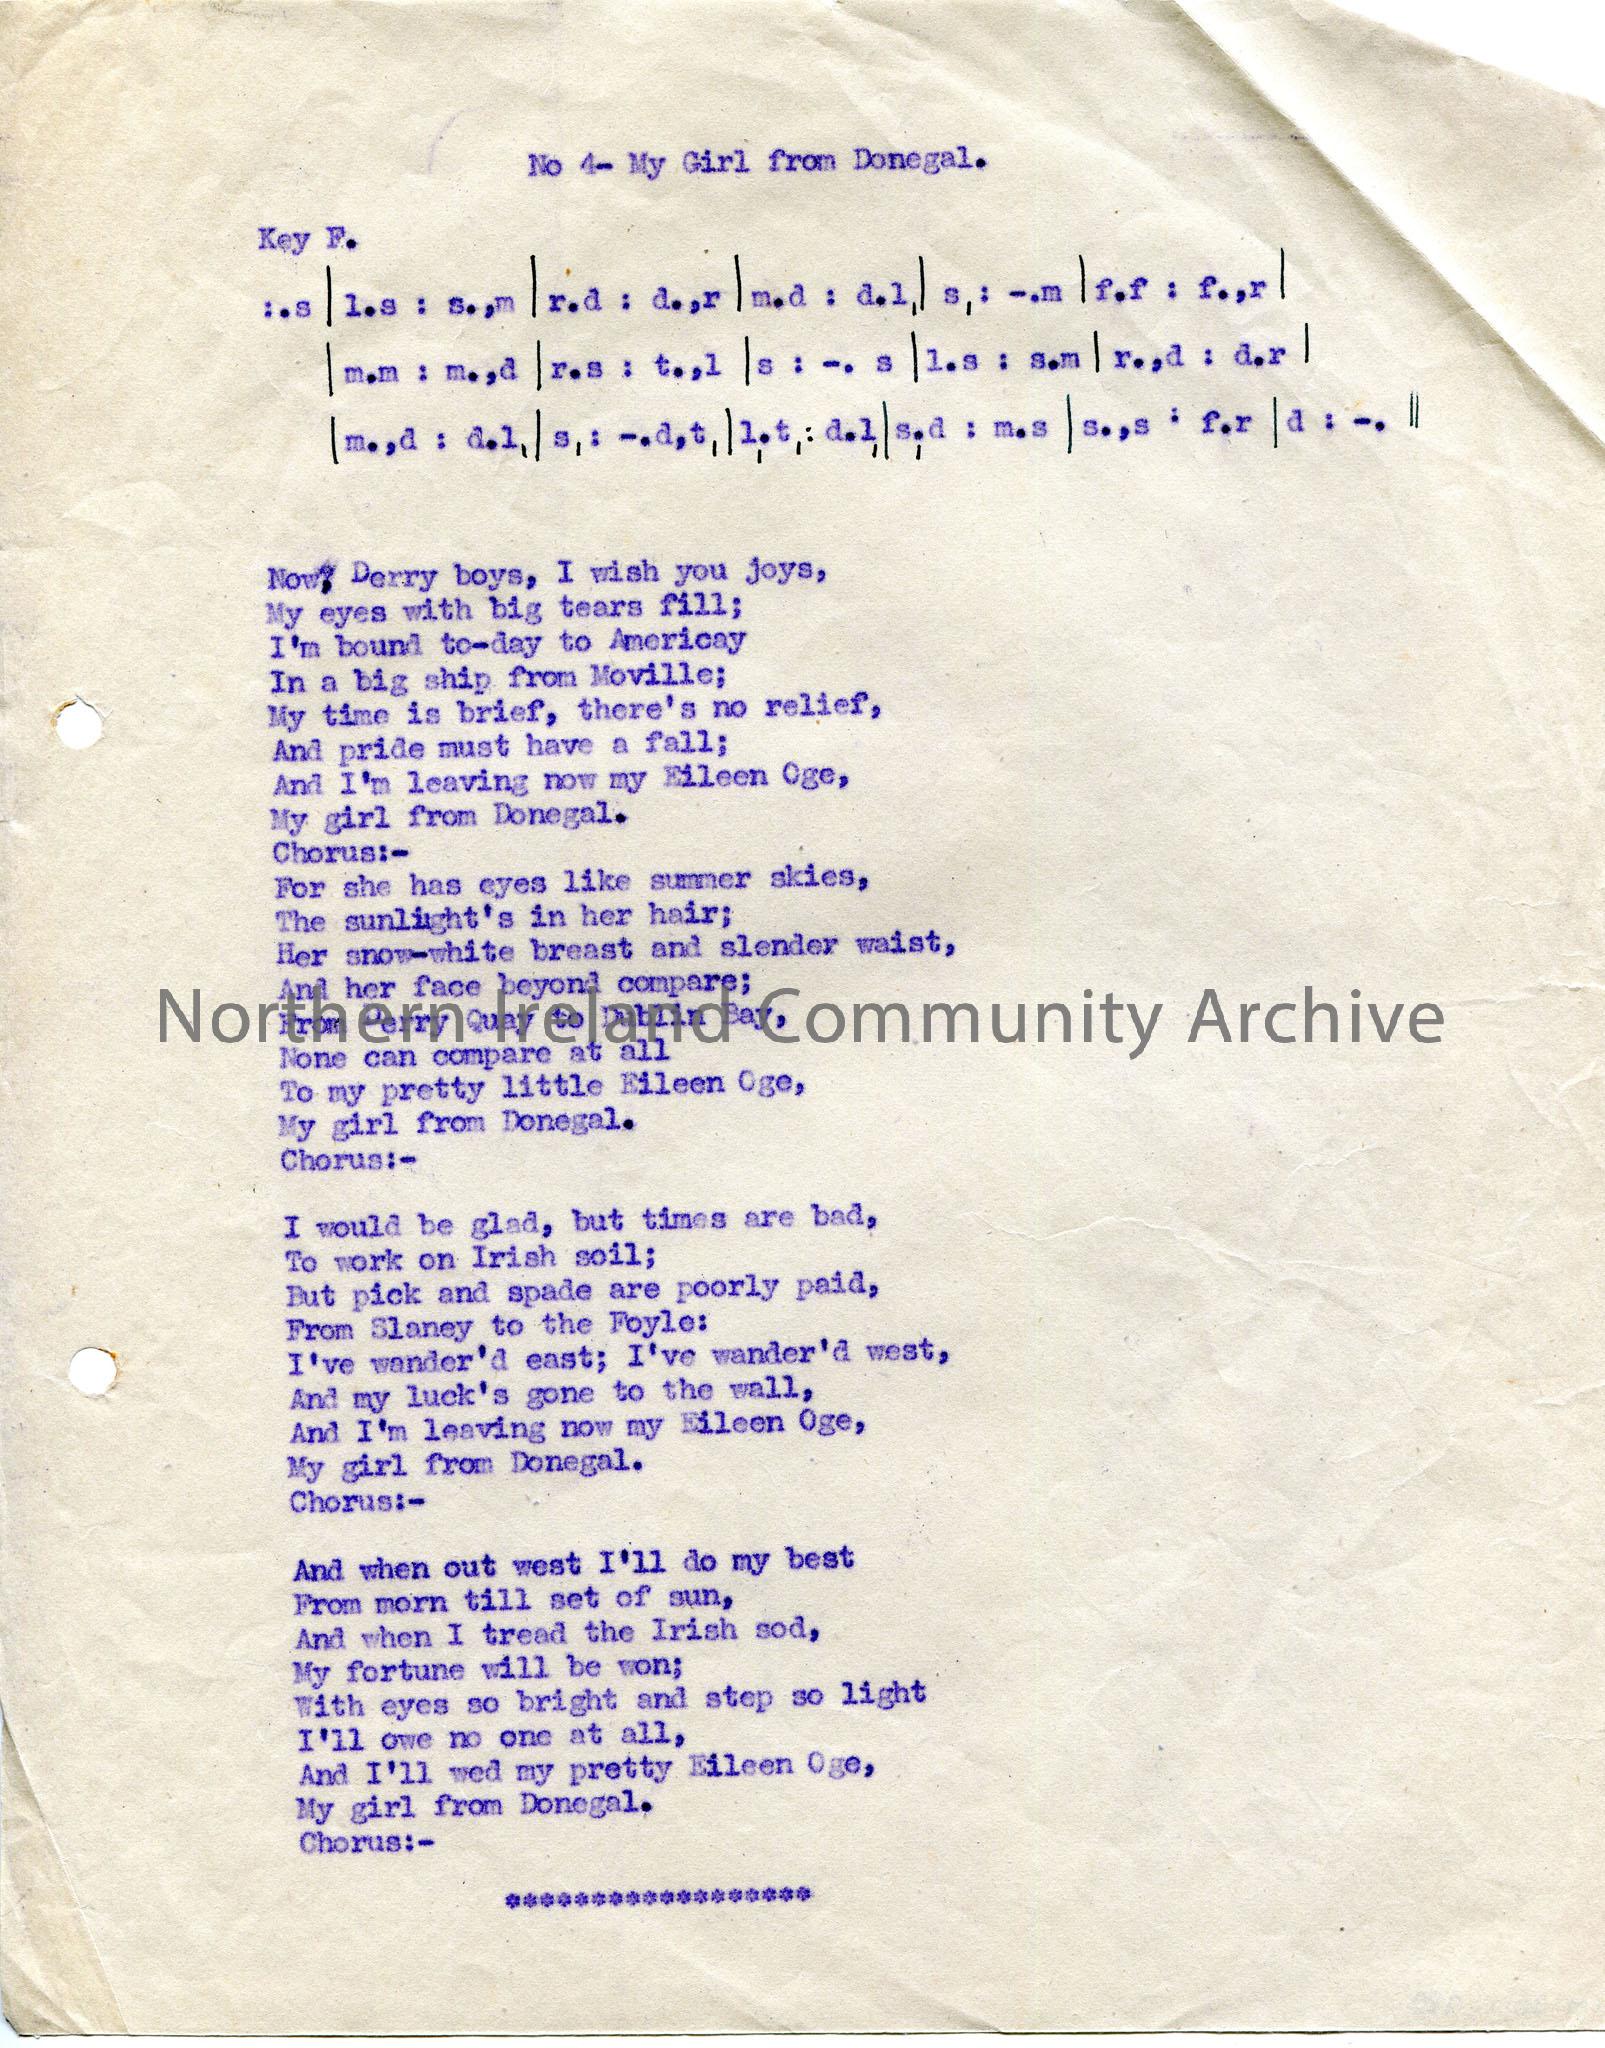 No 4- My Girl from Donegal.
Key F.
:.s | l.s : s.,m | r.d : d.,r | m.d : d.l, | s, : -.m | f.f : f.,r |
| m.m : m.,d | r.s : t.,l | s : -. s | l.s : s.m | r.,d : d.r |
| m.,d : d.l, | s, : -.d,t, | l,.t, : d.l, | s,.d : m.s | s.,s : f.r | d : -. ||
Now, Derry boys, I wish you joys,
My eyes with big tears fill;
I'm bound to-day to Americay
In a big ship from Moville;
My time is brief, there's no relief,
And pride must have a fall;
And I'm leaving now my Eileen Oge,
My girl from Donegal.
Chorus:-
For she has eyes like summer skies,
The sunlight's in her hair;
Her snow-white breast and slender waist,
And her face beyond compare;
From Derry Quay to Dublin Bay,
None can compare at all
To my pretty little Eileen Oge,
My girl from Donegal.
Chorus:-
I would be glad, but times are bad,
To work on Irish soil;
But pick and spade are poorly paid,
From Slaney to the Foyle:
I've wander'd east; I've wander'd west,
And my luck's gone to the wall,
And I'm leaving now my Eileen Oge,
My girl from Donegal.
Chorus:-
And when out west I'll do my best
From morn till set of sun,
And when I tread the Irish sod,
My fortune will be won;
With eyes so bright and step so light
I'll owe no one at all,
And I'll wed my pretty Eileen Oge,
My girl from Donegal.
Chorus:-
******************
Northern Ireland Community Archive